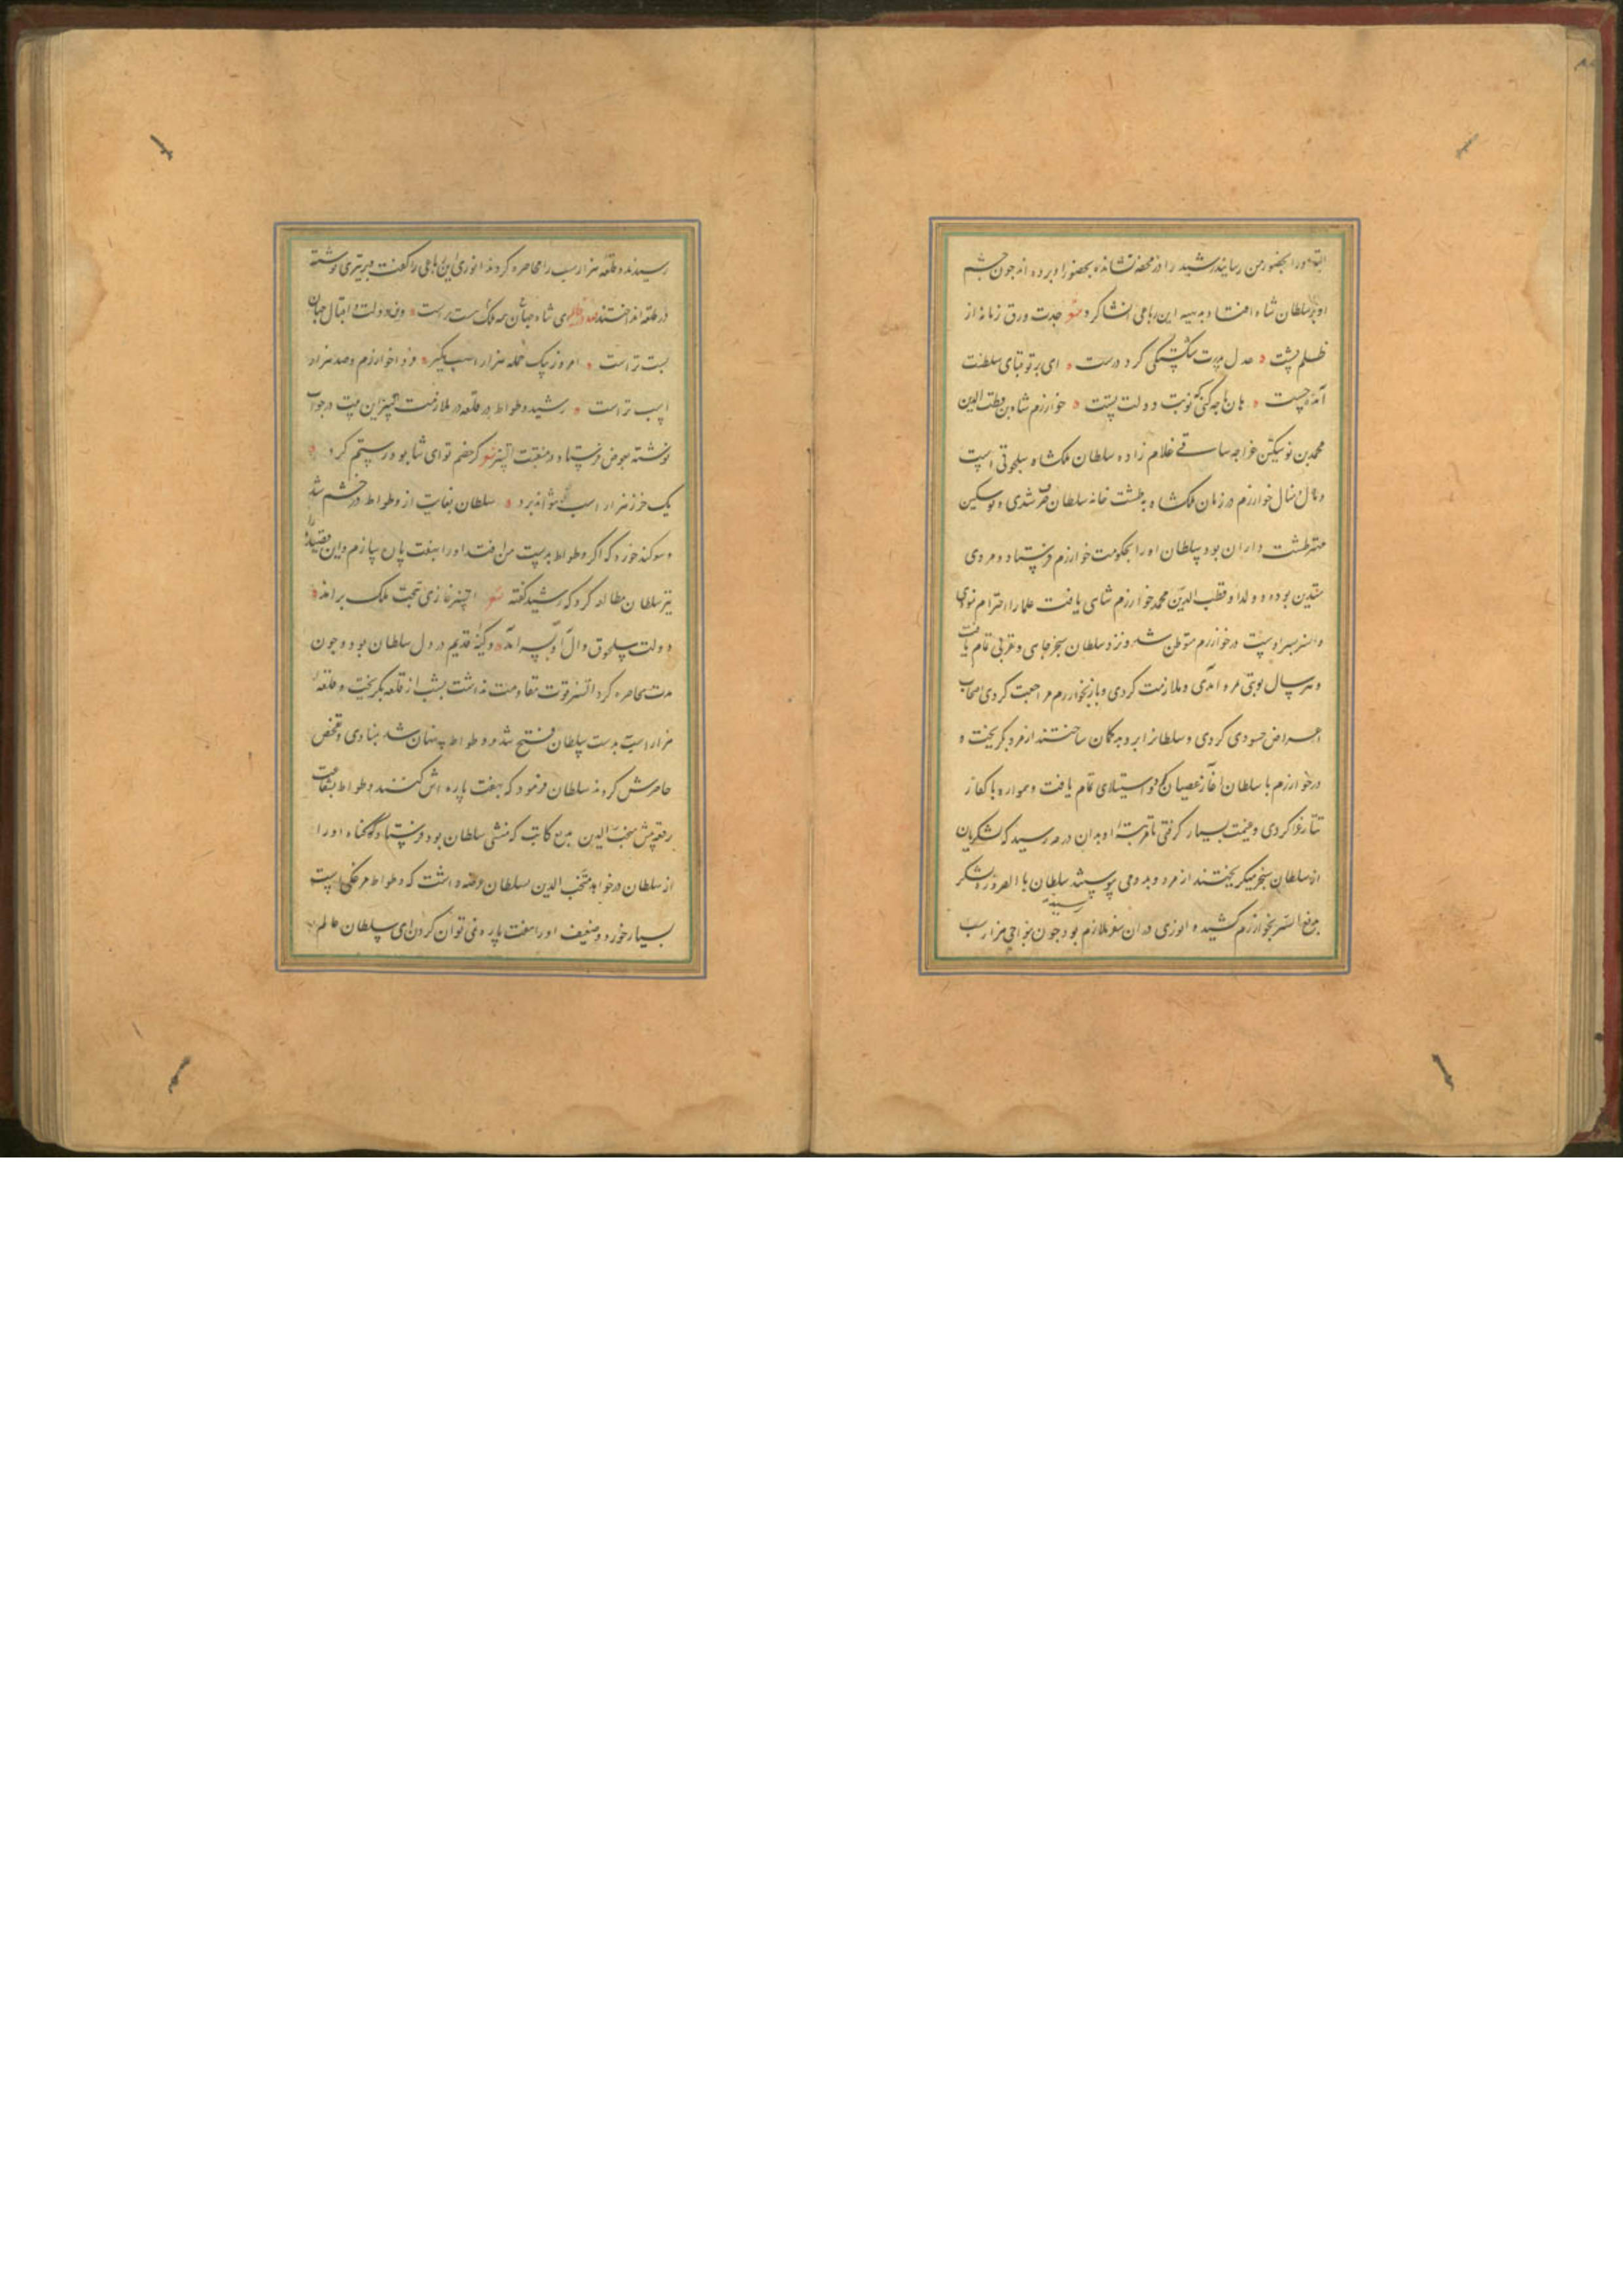 البته او را بحضور من رسانید رشید را در محفه نشانده بحضور او برده اند چون چشم
او بر سلطان شاه افتاد بدیهه این رباعی انشا کرد شعر جدت ورق زمانه از
ظلم بشست عدل پدرت شکستگی کرد درست ای بر تو قبای سلطنت
آمده چست هان تا چه کنی که نوبت دولت تست خوارزم شاه بن قطب الدین
محمد بن نوشتکین غرجه ساقی غلام زاده سلطان ملکشاه سلجوقی است
و مال و منال خوارزم در زمان ملکشاه به طشت خانه سلطان صرف شدی و نوشتکین
مهتر طشت داران بود سلطان او را بحکومت خوارزم فرستاد و مردی
متدین بوده و ولد او قطب الدین محمد خوارزم شاهی یافت علما را احترام نمودی
و اتسز پسر اوست در خوارزم متوطن شد و نزد سلطان سنجر جاهی و تقربی تمام یافت
و هر سال نوبتی بمرو آمدی و ملازمت کردی و باز بخوارزم مراجعت کردی اصحاب
اغراض حسودی کردی و سلطانرا برو بدگمان ساختند از مرو بگریخت و
در خوارزم با سلطان آغاز عصیان کرد و استیلای تمام یافت و همواره با کفار
تتار غزا کردی و غنیمت بسیار گرفتی تا مرتبهٔ او بدان درجه رسید که لشکریان
از سلطان سنجر میگریختند از مرو و بدو می پیوستند سلطان بالضروره لشکر
بدفع اتسز بخوارزم کشید و انوری در آن سفر ملازم بود چون بنواحی هزار اسب رسیدند
رسیدند و قلعه هزار اسب را محاصره کردند انوری این رباعی را گفت و بر تیری نوشته
در قلعه انداختند ای شاه جهان همه ملک حسب تراست وز دولت و اقبال جهان
کسب تراست امروز بیک حمله هزار اسب بگیر فردا خوارزم و صد هزار
اسب تراست رشید وطواط در قلعه در ملازمت اتسز این بیت در جواب
نوشته بعوض فرستاد و در منقبت اتسز شعر گر خصم تو ای شاه بود رستم گرد
یک خر ز هزار اسب نتواند برد سلطان بغایت از وطواط در خشم شد
و سوگند خورد که اگر وطواط بدست من افتد او را بهفت پاره سازم و این قصیده را
نیز سلطان مطالعه کرد که رشید گفته شعر اتسز غازی بتخت ملک برآمد
دولت سلجوق و آل او بسر آمد و کینهٔ قدیم در دل سلطان بود و چون
مدت محاصره کرد اتسز قوت مقاومت نداشت بشب از قلعه بگریخت و قلعهٔ
هزار اسب بدست سلطان فتح شد و وطواط پنهان شد بمنادی و تفحص
حاضرش کردند سلطان فرمود که بهفت پاره اش کنند وطواط بشفاعت
رقعه پیش منتخب الدین بدیع کاتب که منشی سلطان بود فرستاد که گناه او را
از سلطان درخواهد منتخب الدین بسلطان عرضه داشت که وطواط مرغکی است
بسیار خورد و ضعیف او را بهفت پاره نمی توان کردن ای سلطان عالم